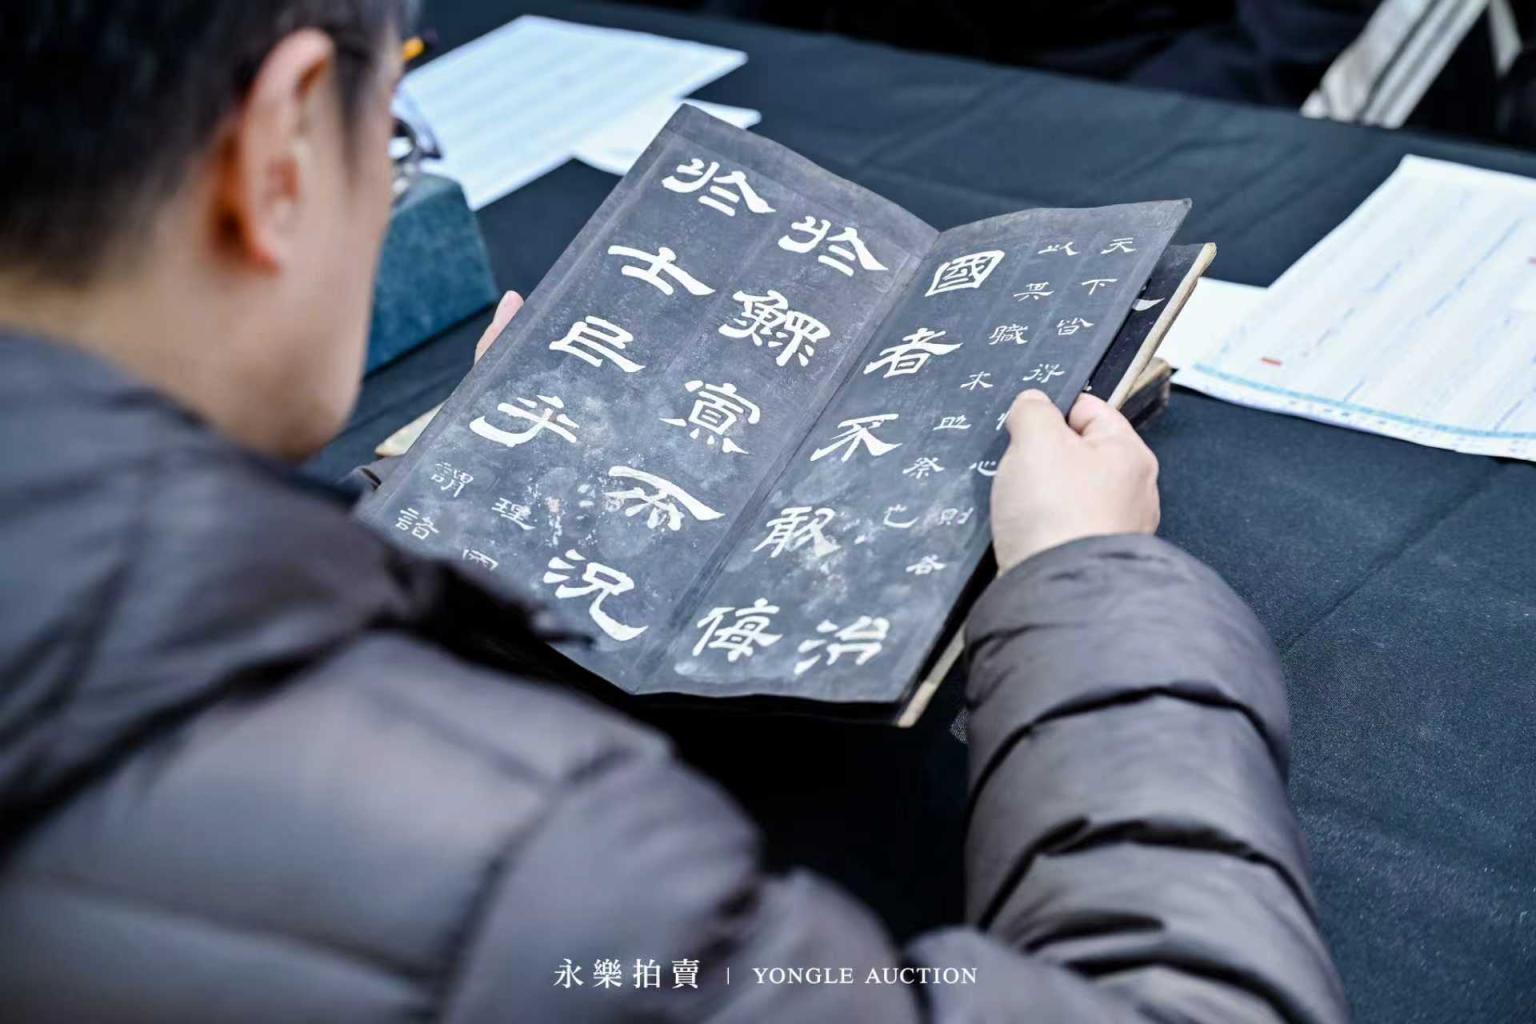 天下皆得心則各
以其職來助祭也
治
國者不敢侮
於鰥寡而況
於士民乎
理國
謂諸
永樂拍賣 | YONGLE AUCTION